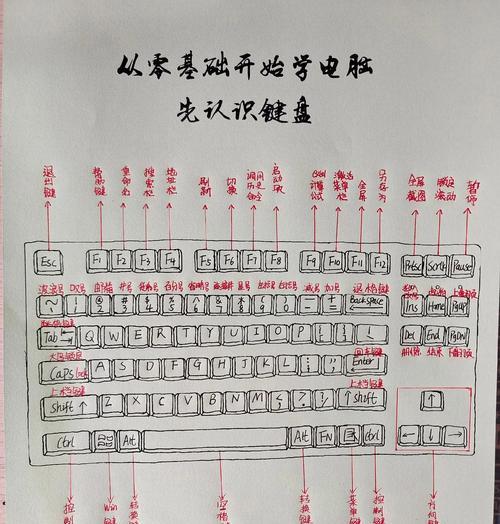 从零基础开始学电脑
先认识键盘
退出键 帮助键 重命名 搜索栏 地址栏 刷新 切换 调用历史命令 启动项 Excel计算公式 激活菜单栏 全屏 另存为 全屏截图 锁定滚动 暂停
Esc F1 F2 F3 F4 F5 F6 F7 F8 F9 F10 F11 F12 PrtSc ScrLk Pause
波浪号 感叹号 井号 百分号 星号 减号 加号 退格键
~ ! @ 2 # 3 $ 4 % 5 ^ 6 & 7 * 8 ( 9 ) 0 - + = Backspace Ins Home PgUp
Tab Q W E R T Y U I O P Del End PgDn
大写锁定 回车键 删除 结束 下翻页
Caps lock A S D F G H J K L ; Enter
上档键 上档键
Shift ↑ Z X C V B N M ? / ↑ Shift ↑
Ctrl Alt Alt FN Ctrl ← ↓ →
控制 Win键 转换键 空格 转换键 菜单键 控制 方向